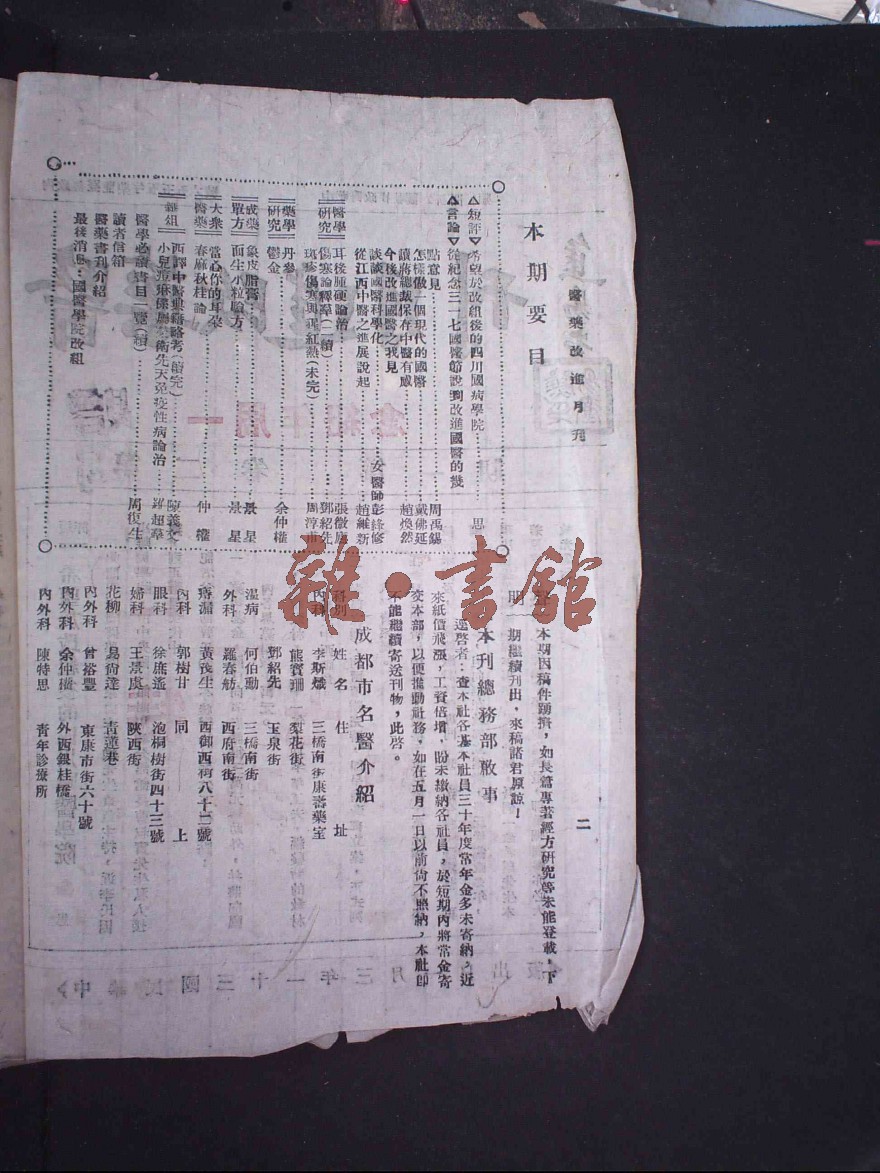 醫藥改進月刊
二
本期要目
△短評▽希望於改組後的四川國病學院……思
△言論▽從紀念三一七國醫節說到改進國醫的幾
點意見……周禹錫
怎樣做一個現代的國醫……戴佛延
讀蔣總裁保存中醫有感……趙煥然
今後改進國醫之我見
談談國醫科學化……女醫師彭緣修
從江西中醫之進展說起……趙維新
醫學研究
耳後腫硬論治……張徵
傷寒論釋罩(二續)……鄧紹先
斑疹傷寒與猩紅熱(未完)……周淳
藥學研究
丹參
鬱金……余仲權
成藥單方
象皮脂膏……景星
面生小粒驗方……景星
大衆醫藥
當心你的耳朵
春麻秋桂論……仲權
雜組
西譯中醫典籍略考(續完)……陳義文
小兒痘麻佛屬榮衛先天免疫性病論治……羅超羣
醫學必讀書目一覽(續)……周復生
讀者信箱
醫藥書刊介紹
最後消息:國醫學院改組
明
本期因稿件踴擠,如長篇專著經方研究等未能登載,下
期繼續刊出,來稿諸君原諒!
本刊總務部啟事
逕啓者:查本社各基本社員三十年度常年金多未寄納,近
來紙價飛漲,工資倍增,盼未繳納各社員,於短期內將常金寄
交本部,以便推動社務,如在五月一日以前尙不照納,本社卽
不能繼續寄送刊物,此啓。
成都市名醫介紹
科別 姓名 住址
內科 李斯熾 三橋南街康壽藥室
熊寶珊 梨花街
鄧紹先 玉泉街
溫病 何伯勳 三橋南街
外科 羅春舫 西府南街
痔漏 黃茂生 西御西街八十二號
內科 郭樹甘 同上
眼科 徐庶遙 泡桐樹街四十三號
婦科 王景虞 陝西街
花柳 易尙達 靑蓮巷
內外科 曾裕豐 東康市街六十號
內外科 余仲權 外西銀桂橋
內外科 陳特思 靑年診療所
雜·書館